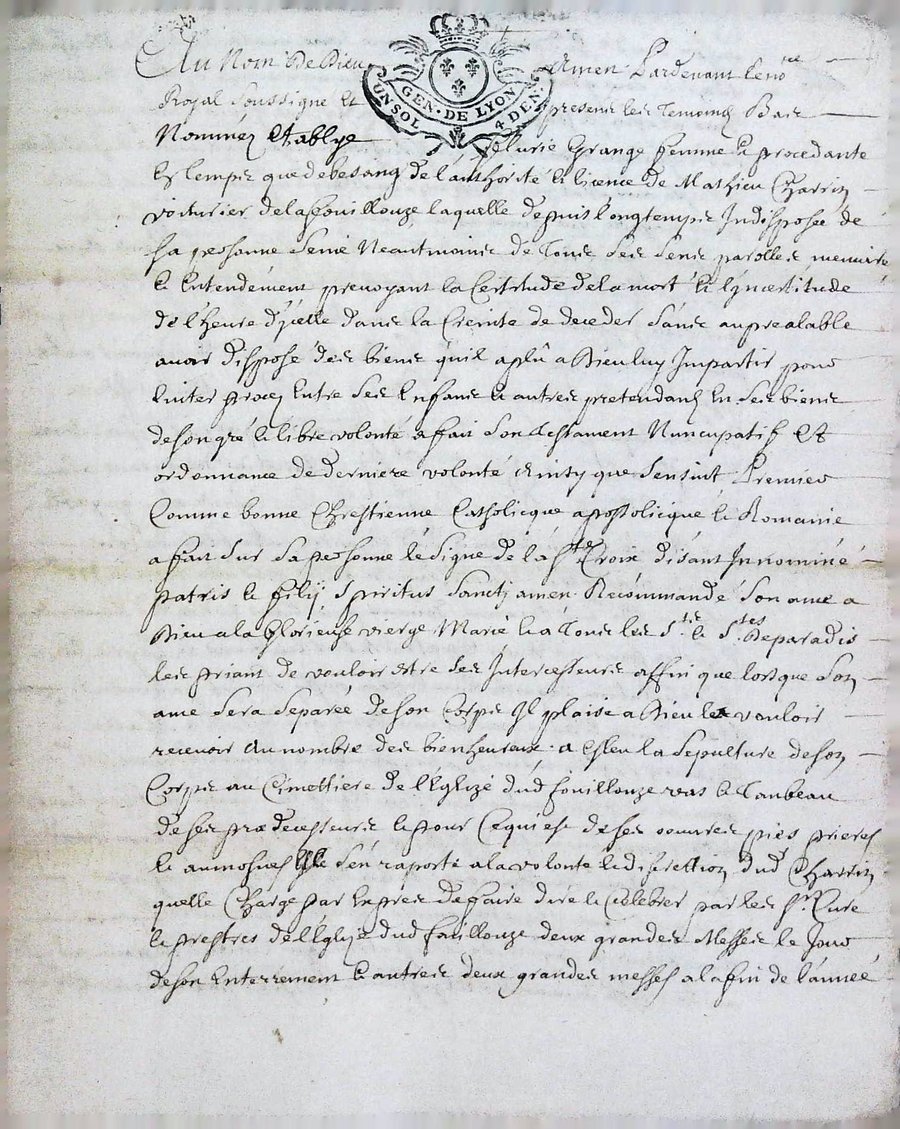 Au Nom De Dieu Amen Pardevant le no.re
Royal soussigne et presens les Temoins Bas
GEN. DE LYON
UN SOL 4 DEN.
Nommez Establye Grange femme et procedante
de l'authorité et licence de Mathieu Charrin
voiturier de la feouillouze laquelle depuis longtemps Indisposée de
sa personne Neantmoins de Tous ses sens parolles memoire
et Entendement prevoyant la Certitude de la mort et lyncertitude
de l'heure d'ycelle dans la Creinte de deceder sans aupréalable
avoir dispose des biens quil a plû a Dieu luy Impartir pour
Eviter proces Entre ses Enfans et autres pretendans En ses biens
de son gré et libre volonté a fait son Testament Nuncupatif Et
ordonnance de derniere volonté ainsy que sensuit Premier
Comme bonne Chrestienne Catholicque apostolicque et Romaine
a fait sur sa personne le signe de la S.te Croix disant In nomine
patris et filij Spiritus Sancty amen Recommandé son ame a
Dieu a la Glorieuse vierge Marie et a Tous les S.ts et S.tes De paradis
les priant de vouloir estre ses Intercesseurs affin que lorsque son
ame sera separée de son Corps Il plaise a Dieu la vouloir
recevoir au nombre des bienheureux a Esleu la sepulture de son
Corps au Cimettiere de l'Eglize dud fouillouze vas et Tanbeau
de ses predecesseurs et pour Ce qui est de ses oeuvres pies prieres
et aumosnes Elle sen raporte a la volonte et discrettion dud Charrin
quelle Charge par Expres de faire dire et Celebrer par les Sr. Curé
et prestres de l'Eglize dud faillouze deux grandes Messes le Jour
de son Enterrement et autres deux grandes messes a la fin de l'année